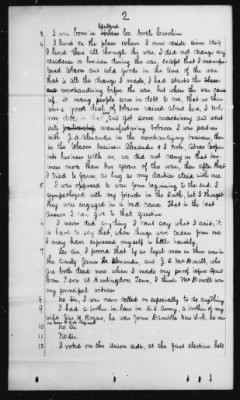 2
Iredell
3 I was born in Co. North Carolina
4 I lived on the place where I now reside since 1849
I lived there all through the war, I did not change my
residence or business during the war, except that I manufac-
tured tobacco and sold goods in the time of the war
that is all the change I made, I had started the
merchandising before the war, but when the war came
up, so many people were in debt to me, that as there
was a good deal of tobacco raised about here, I took
and got some machinery and went
into manufacturing tobacco I was partner
with J. H. Alexander in the merchandising business, then
in the tobacco business Alexander & I took
into business with us, we did not carry on that bus-
iness more than two years of the war, then after that
I tried to farm, as long as my darkies staid with me
5 I was opposed to war from beginning to the end, I
sympathized with my friends in the South, but I thought
they was engaged in a bad cause. That is the best
answer I can give to that question
6 I never did anything I can't say what I said, it
is hard to say that, when things were taken from me
I may have expressed myself a little harshly.
7 Yes Sir, I proved that by as loyal men as there was in
the County James and J. S. McDowell, who
are both dead now when I made my proof before Gov-
ernor at Huntingdon Tenn, I think McDowell was
my principal witness
8 No Sir, I was never called on especially to do anything
9 I had a brother in law in U.S. Army, a brother of my
wife, Jas H Rogers, he was from Danville New York, he was
10 No Sir.
11 No Sir.
12 I voted on the Union side, at the first election held